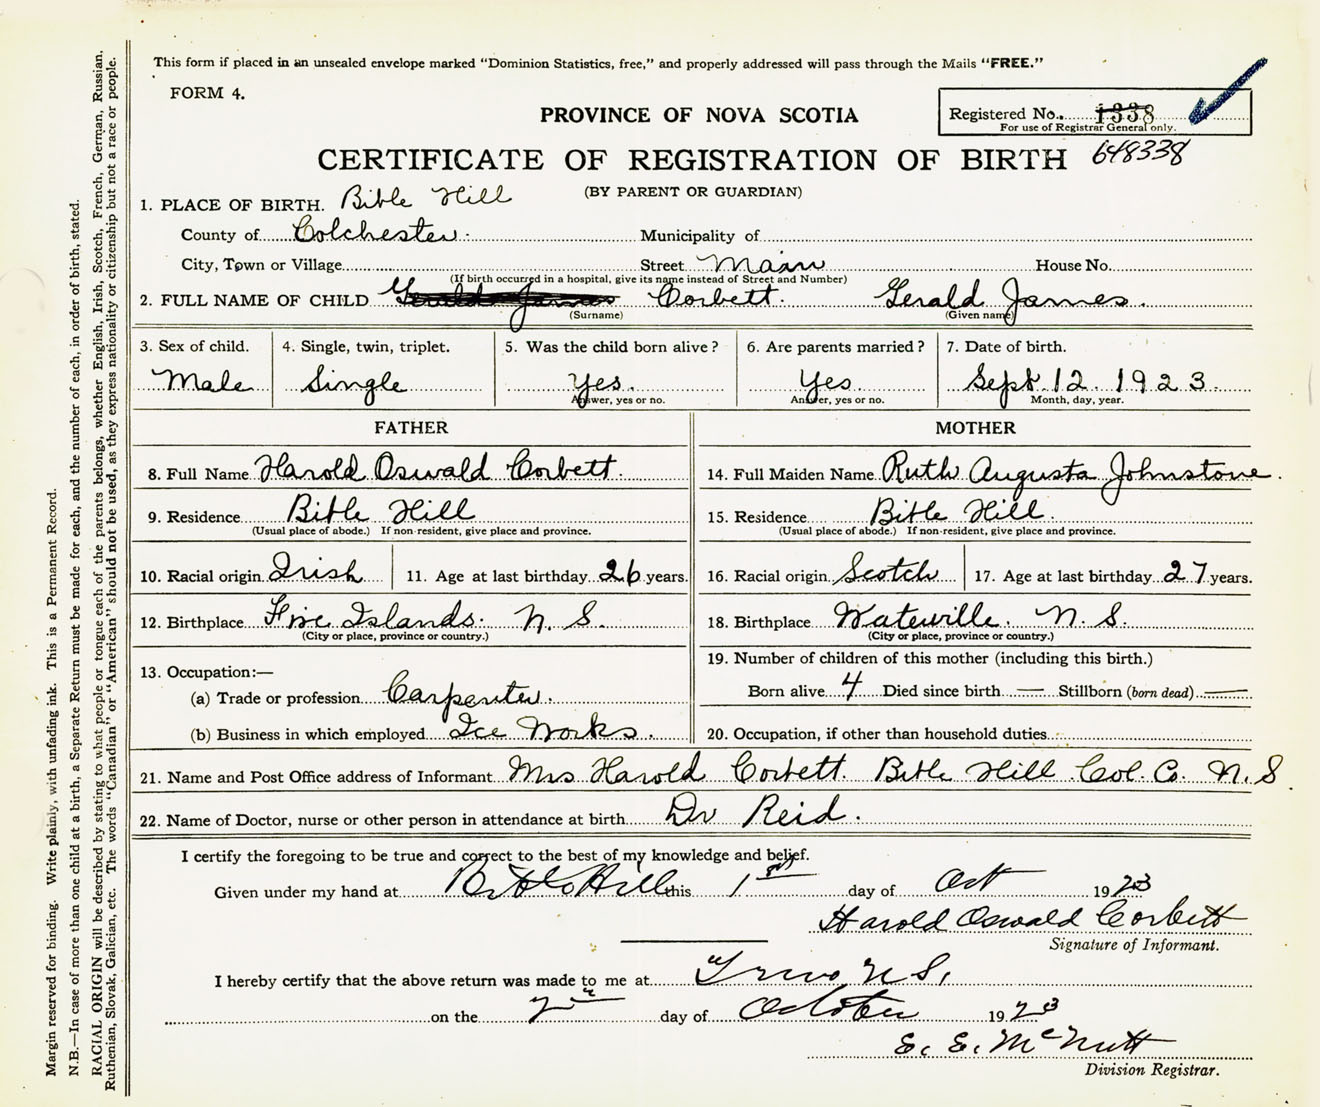 This form if placed in an unsealed envelope marked "Dominion Statistics, free," and properly addressed will pass through the Mails "FREE."
FORM 4.
PROVINCE OF NOVA SCOTIA
Registered No. 1338
For use of Registrar General only.
648338
CERTIFICATE OF REGISTRATION OF BIRTH
(BY PARENT OR GUARDIAN)
1. PLACE OF BIRTH. Bible Hill
County of Colchester. Municipality of
City, Town or Village Street Main House No.
(If birth occurred in a hospital, give its name instead of Street and Number)
2. FULL NAME OF CHILD Gerald James Corbett. Gerald James.
(Surname) (Given name)
3. Sex of child. 4. Single, twin, triplet. 5. Was the child born alive? 6. Are parents married? 7. Date of birth.
Male Single Yes. Yes. Sept. 12. 1923.
Answer, yes or no. Answer, yes or no. Month, day, year.
FATHER MOTHER
8. Full Name Harold Oswald Corbett. 14. Full Maiden Name Ruth Augusta Johnstone.
9. Residence Bible Hill 15. Residence Bible Hill.
(Usual place of abode.) If non-resident, give place and province. (Usual place of abode.) If non-resident, give place and province.
10. Racial origin Irish 11. Age at last birthday 26 years. 16. Racial origin Scotch 17. Age at last birthday 27 years.
12. Birthplace Five Islands. N. S. 18. Birthplace Waterville. N. S.
(City or place, province or country.) (City or place, province or country.)
13. Occupation:— 19. Number of children of this mother (including this birth.)
(a) Trade or profession Carpenter. Born alive 4 Died since birth — Stillborn (born dead) —
(b) Business in which employed Ice Works. 20. Occupation, if other than household duties
21. Name and Post Office address of Informant Mrs Harold Corbett. Bible Hill Col. Co. N. S.
22. Name of Doctor, nurse or other person in attendance at birth Dr Reid.
I certify the foregoing to be true and correct to the best of my knowledge and belief.
Given under my hand at Bible Hill this 1st day of Oct 1923
Harold Oswald Corbett
Signature of Informant.
I hereby certify that the above return was made to me at Truro N S,
on the 2nd day of October 1923
E. E. McNutt
Division Registrar.
Margin reserved for binding. Write plainly, with unfading ink. This is a Permanent Record.
N.B.—In case of more than one child at a birth, a Separate Return must be made for each, and the number of each, in order of birth, stated.
RACIAL ORIGIN will be described by stating to what people or tongue each of the parents belongs, whether English, Irish, Scotch, French, German, Russian,
Ruthenian, Slovak, Galician, etc. The words "Canadian" or "American" should not be used, as they express nationality or citizenship but not a race or people.